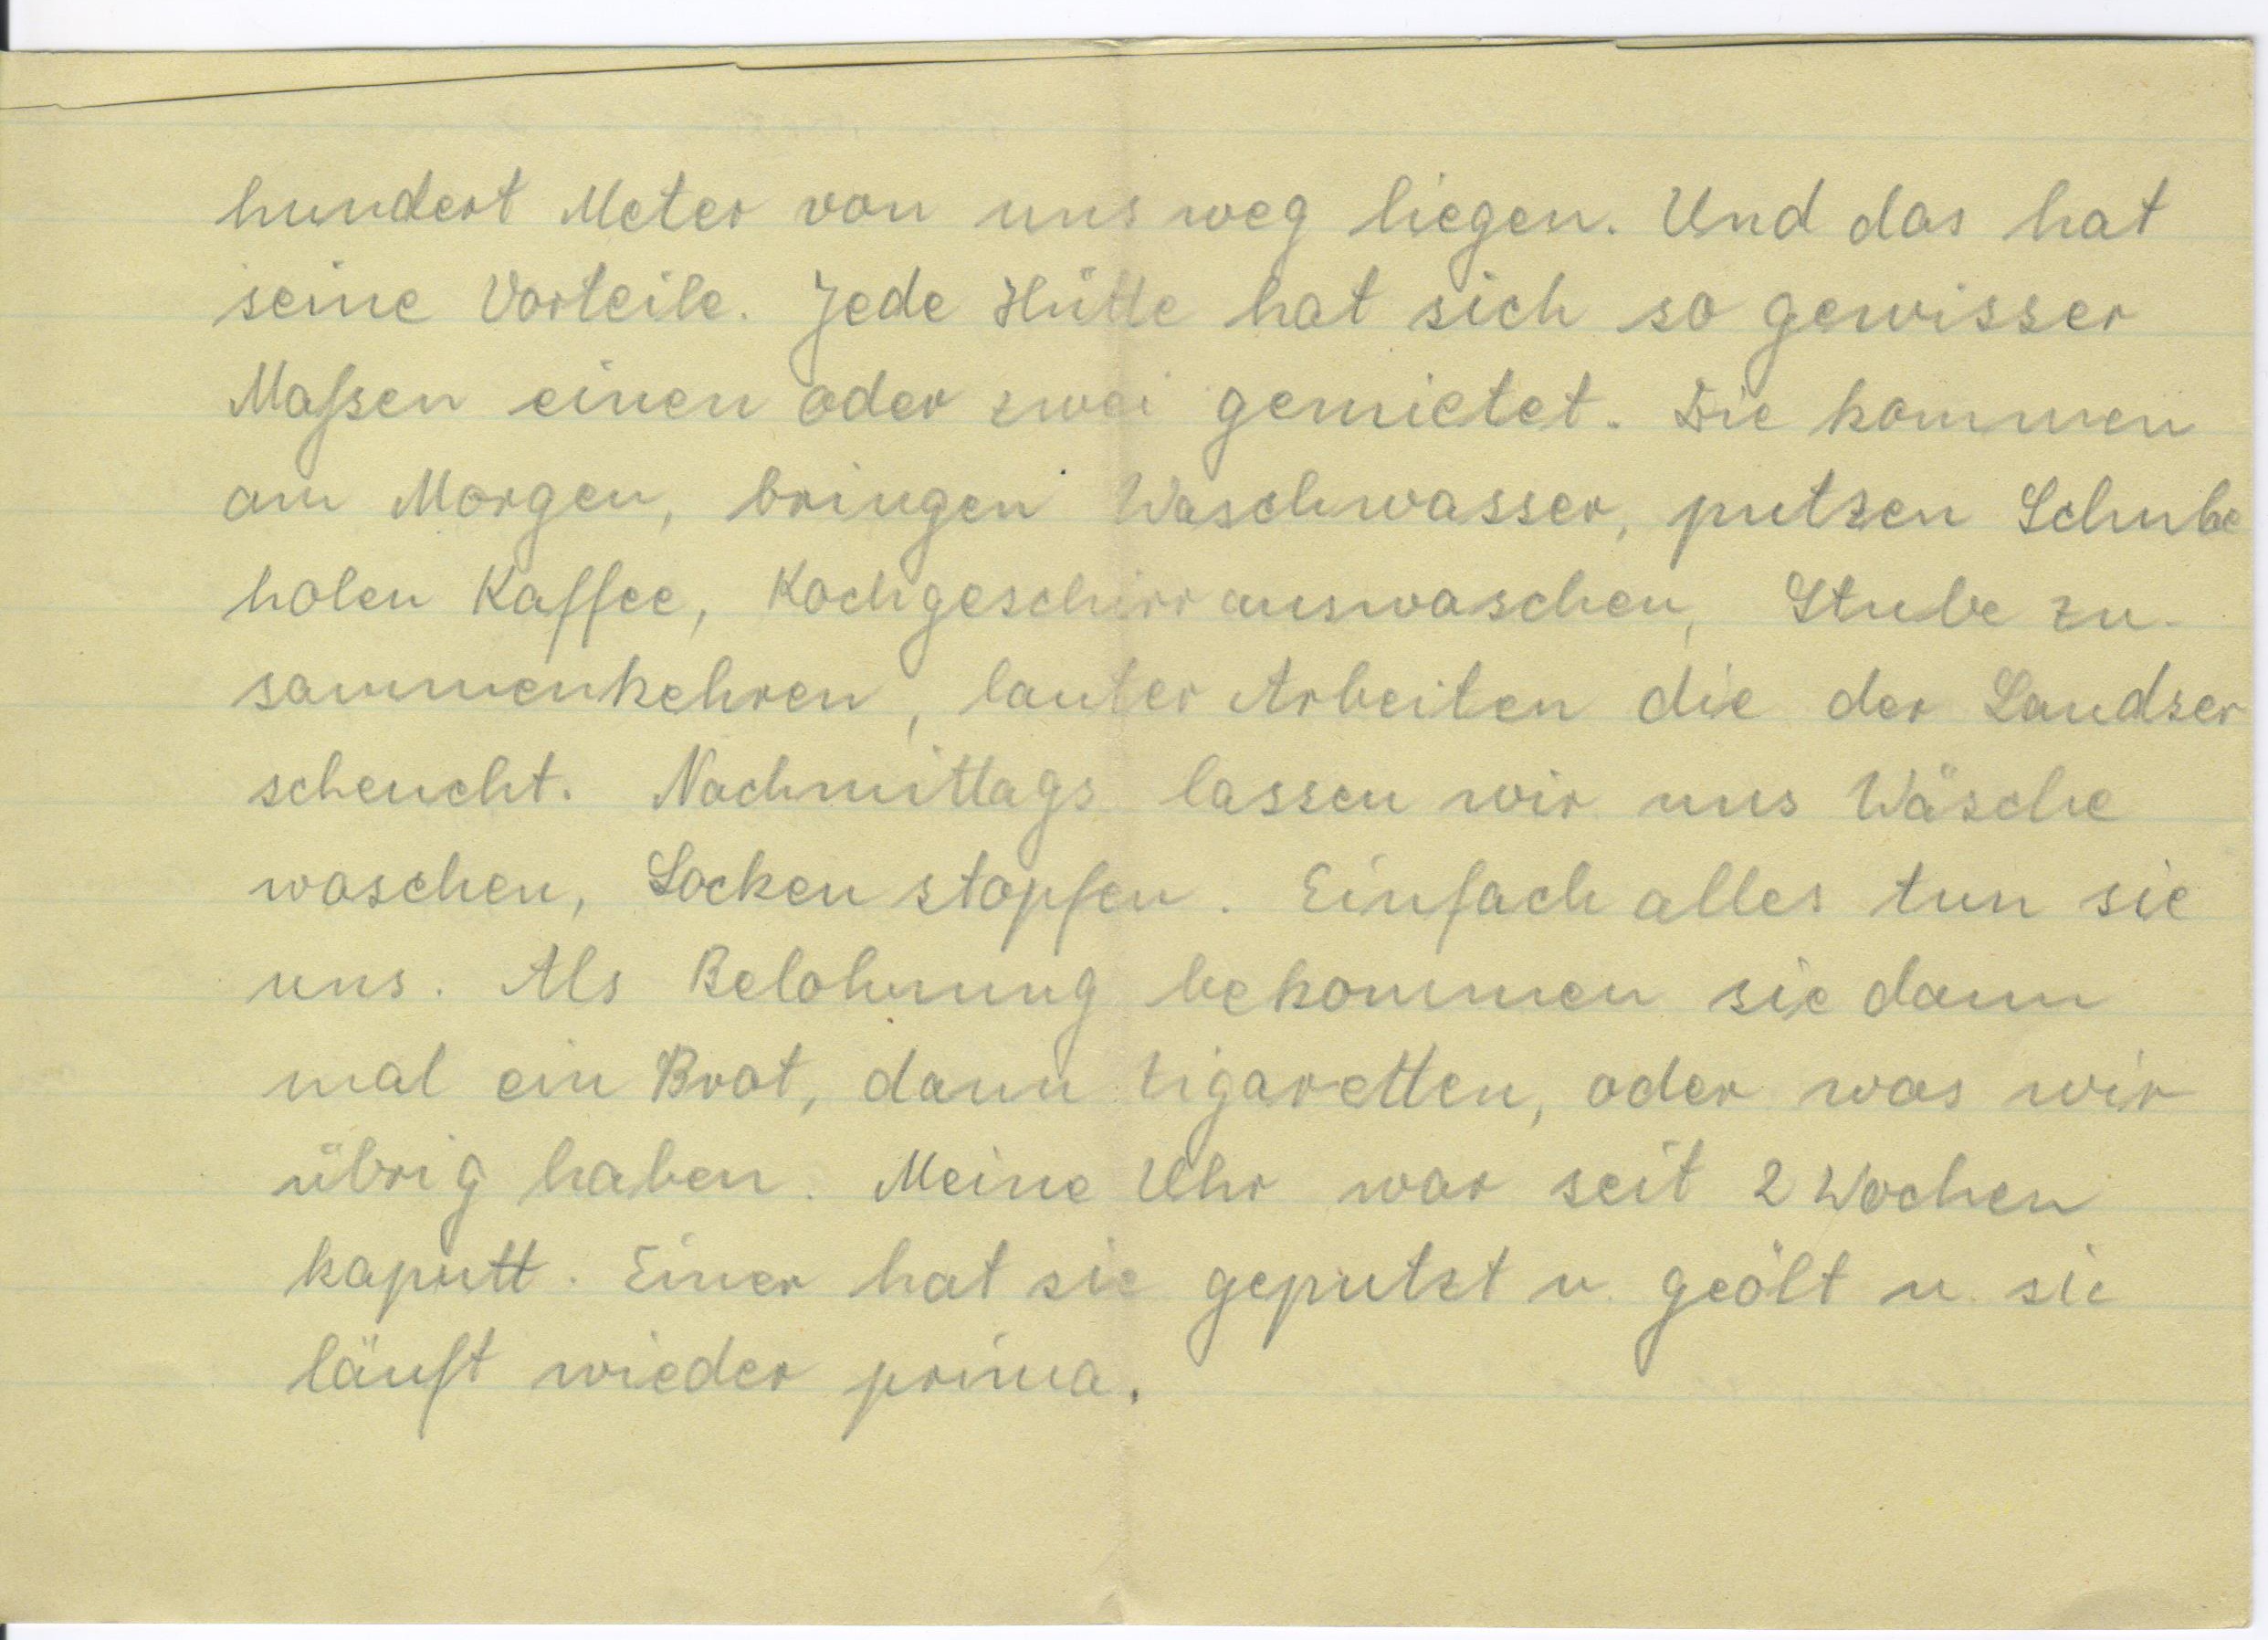 hundert Meter von uns weg liegen. Und das hat
seine Vorteile. Jede Hütte hat sich so gewisser
Massen einen oder zwei gemietet. Die kommen
am Morgen, bringen Waschwasser, putzen Schuhe
holen Kaffee, Kochgeschirr auswaschen, Stube zu-
sammenkehren, lauter Arbeiten die der Landser
scheucht. Nachmittags lassen wir uns Wäsche
waschen, Socken stopfen. Einfach alles tun sie
uns. Als Belohnung bekommen sie dann
mal ein Brot, dann Zigaretten, oder was wir
übrig haben. Meine Uhr war seit 2 Wochen
kaputt. Einer hat sie geputzt u. geölt u. sie
läuft wieder prima.